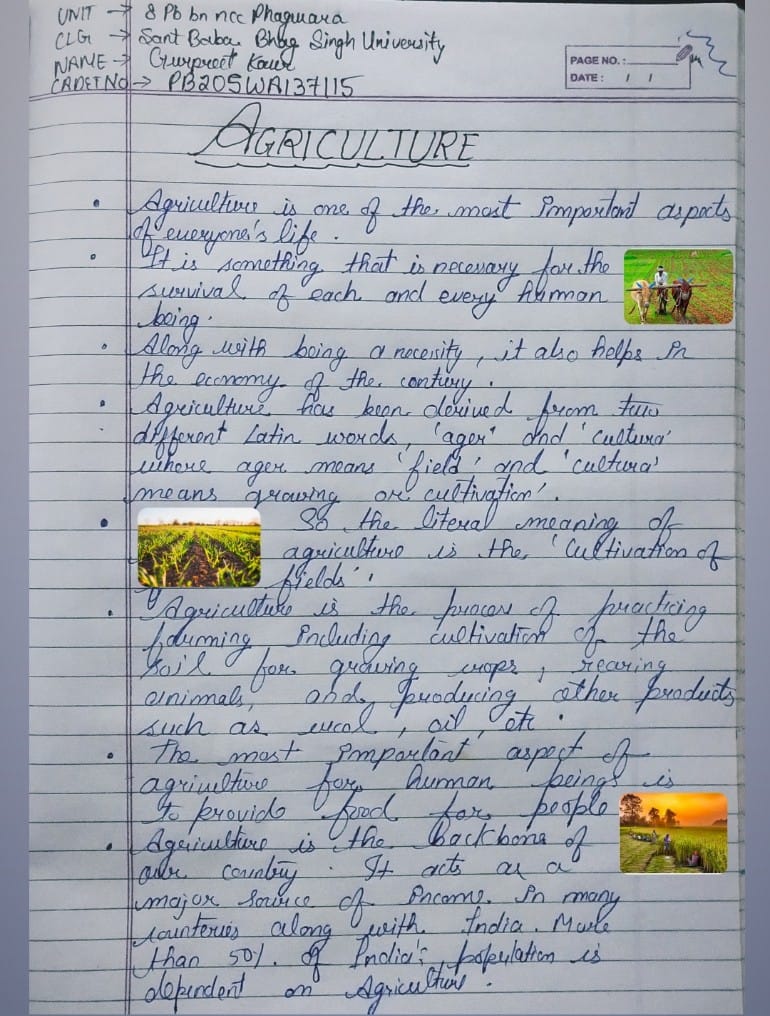 UNIT → 8 Pb bn ncc Phagwara
CLG → Sant Baba Bhag Singh University
NAME → Gurpreet Kaur
CADET NO → PB20SWA137115
PAGE NO.:
DATE: / /
AGRICULTURE
• Agriculture is one of the most important aspects
of everyone's life.
• It is something that is necessary for the
survival of each and every human
being.
• Along with being a necesity, it also helps in
the economy of the contury.
• Agriculture has been derived from two
different Latin words, 'ager' and 'cultura'
where ager means 'field' and 'cultura'
means growing or cultivation'.
• So the literal meaning of
agriculture is the 'Cultivation of
fields'.
• Agriculture is the process of practicing
farming including cultivation of the
soil for growing crops, rearing
animals, and producing other products
such as wool, oil, etc.
• The most important aspect of
agriculture for human beings is
to provide food for people
• Agriculture is the backbone of
our country. It acts as a
major source of income in many
counteries along with India. More
than 50% of India's population is
dependent on Agriculture.